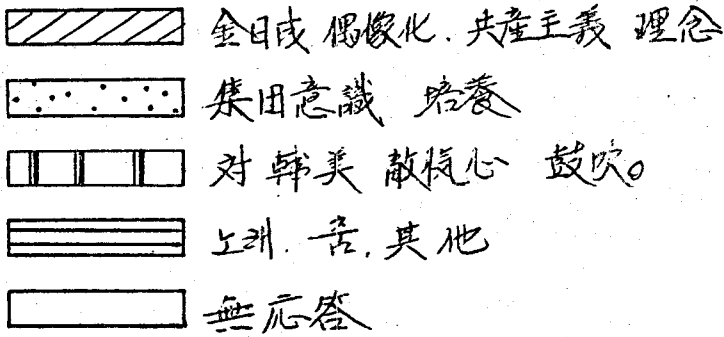 金日成 偶像化. 共産主義 理念
集団意識 培養
対 韓美 敵愾心 鼓吹。
노래. 춤, 其他
無応答